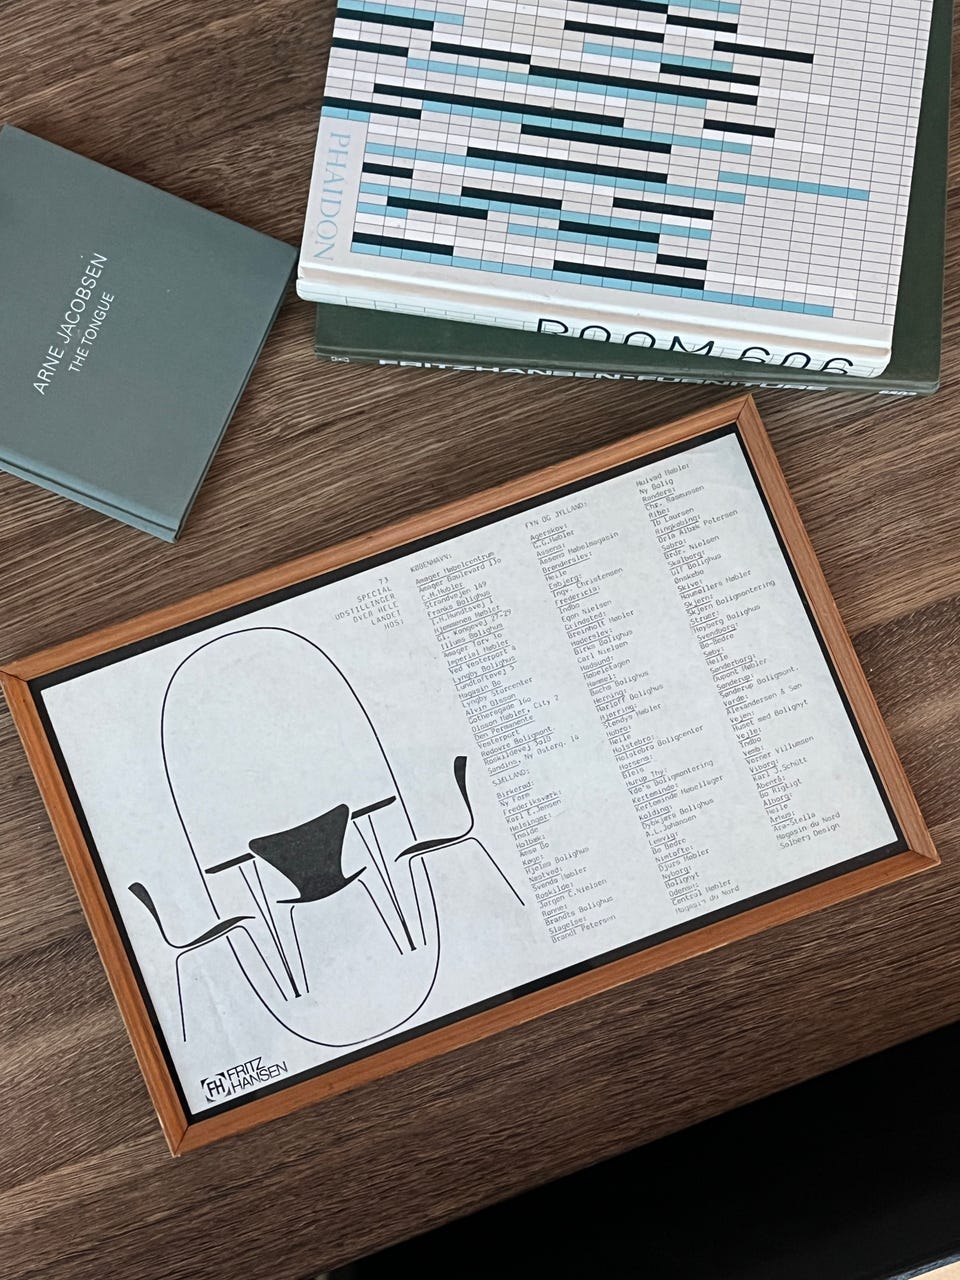 ARNE JACOBSEN
THE TONGUE
PHAIDON
ROOM 606
FRITZ HANSEN FURNITURE
73
SPECIAL
UDSTILLINGER
OVER HELE
LANDET
HOS:
KØBENHAVN:
Amager Møbelcentrum
Amager Boulevard 130
C.H.Møbler
Strandvejen 169
Franks Bolighus
Hjemmenes Møbler
Gl. Kongevej 27-29
Illums Bolighus
Amager Torv 10
Imperial Møbler
Ved Vesterport 4
Lyngby Bolighus
Lundtoftevej 5
Magasin Bo
Lyngby Storcenter
Alvin Olsson
Gothersgade 160
Olsson Møbler, City 2
Den Permanente
Vesterport
Rødovre Boligmont.
Sandins, Ny Østerg. 14
SJÆLLAND:
Birkerød:
Ny Form
Frederiksværk:
Karl E.Jensen
Helsingør:
Inside
Holbæk:
Køge:
Hjelms Bolighus
Næstved:
Svends Møbler
Roskilde:
Jørgen C.Nielsen
Rønne:
Brandts Bolighus
Slagelse:
Brandt Petersen
FYN OG JYLLAND:
Agerskov:
C.G.Møbler
Assens:
Assens Møbelmagasin
Brønderslev:
Heile
Esbjerg:
Ingv. Christensen
Fredericia:
Indbo
Egon Nielsen
Grindsted:
Breinholt Møbler
Haderslev:
Birks Bolighus
Carl Nielsen
Hadsund:
Møbelstagen
Hammel:
Bachs Bolighus
Herning:
Harloff Bolighus
Hjørring:
Stendys Møbler
Hobro:
Heile
Holstebro:
Holstebro Boligcenter
Horsens:
Hurup Thy:
Yde's Boligmontering
Kerteminde:
Kerteminde Møbellager
Kolding:
Dybkjærs Bolighus
A.L.Johansen
Lemvig:
Bo Bedre
Nimtofte:
Djurs Møbler
Nyborg:
Bolignyt
Odense:
Central Møbler
Magasin du Nord
Hulvad Møbler
Ny Bolig
Randers:
Chr. Rasmussen
Ribe:
Ib Laursen
Ringkøbing:
Orla Albæk Petersen
Sabro:
Brdr. Nielsen
Skalborg:
Ulf Bolighus
Ønskebo
Skive:
Houmøllers Møbler
Skjern:
Skjern Boligmontering
Struer:
Højberg Bolighus
Svendborg:
Bo-Bedre
Sæby:
Heile
Sønderborg:
Dupont Møbler
Sønderup:
Sønderup Boligmont.
Varde:
Alexandersen & Søn
Vejen:
Huset med Bolignyt
Vejle:
Indbo
Vemb:
Verner Villumsen
Viborg:
Karl J.Schütt
Åbenrå:
Bo Rigtigt
Ålborg:
Heile
Århus:
Ara-Stella
Magasin du Nord
Salberg Design
FH FRITZ
HANSEN